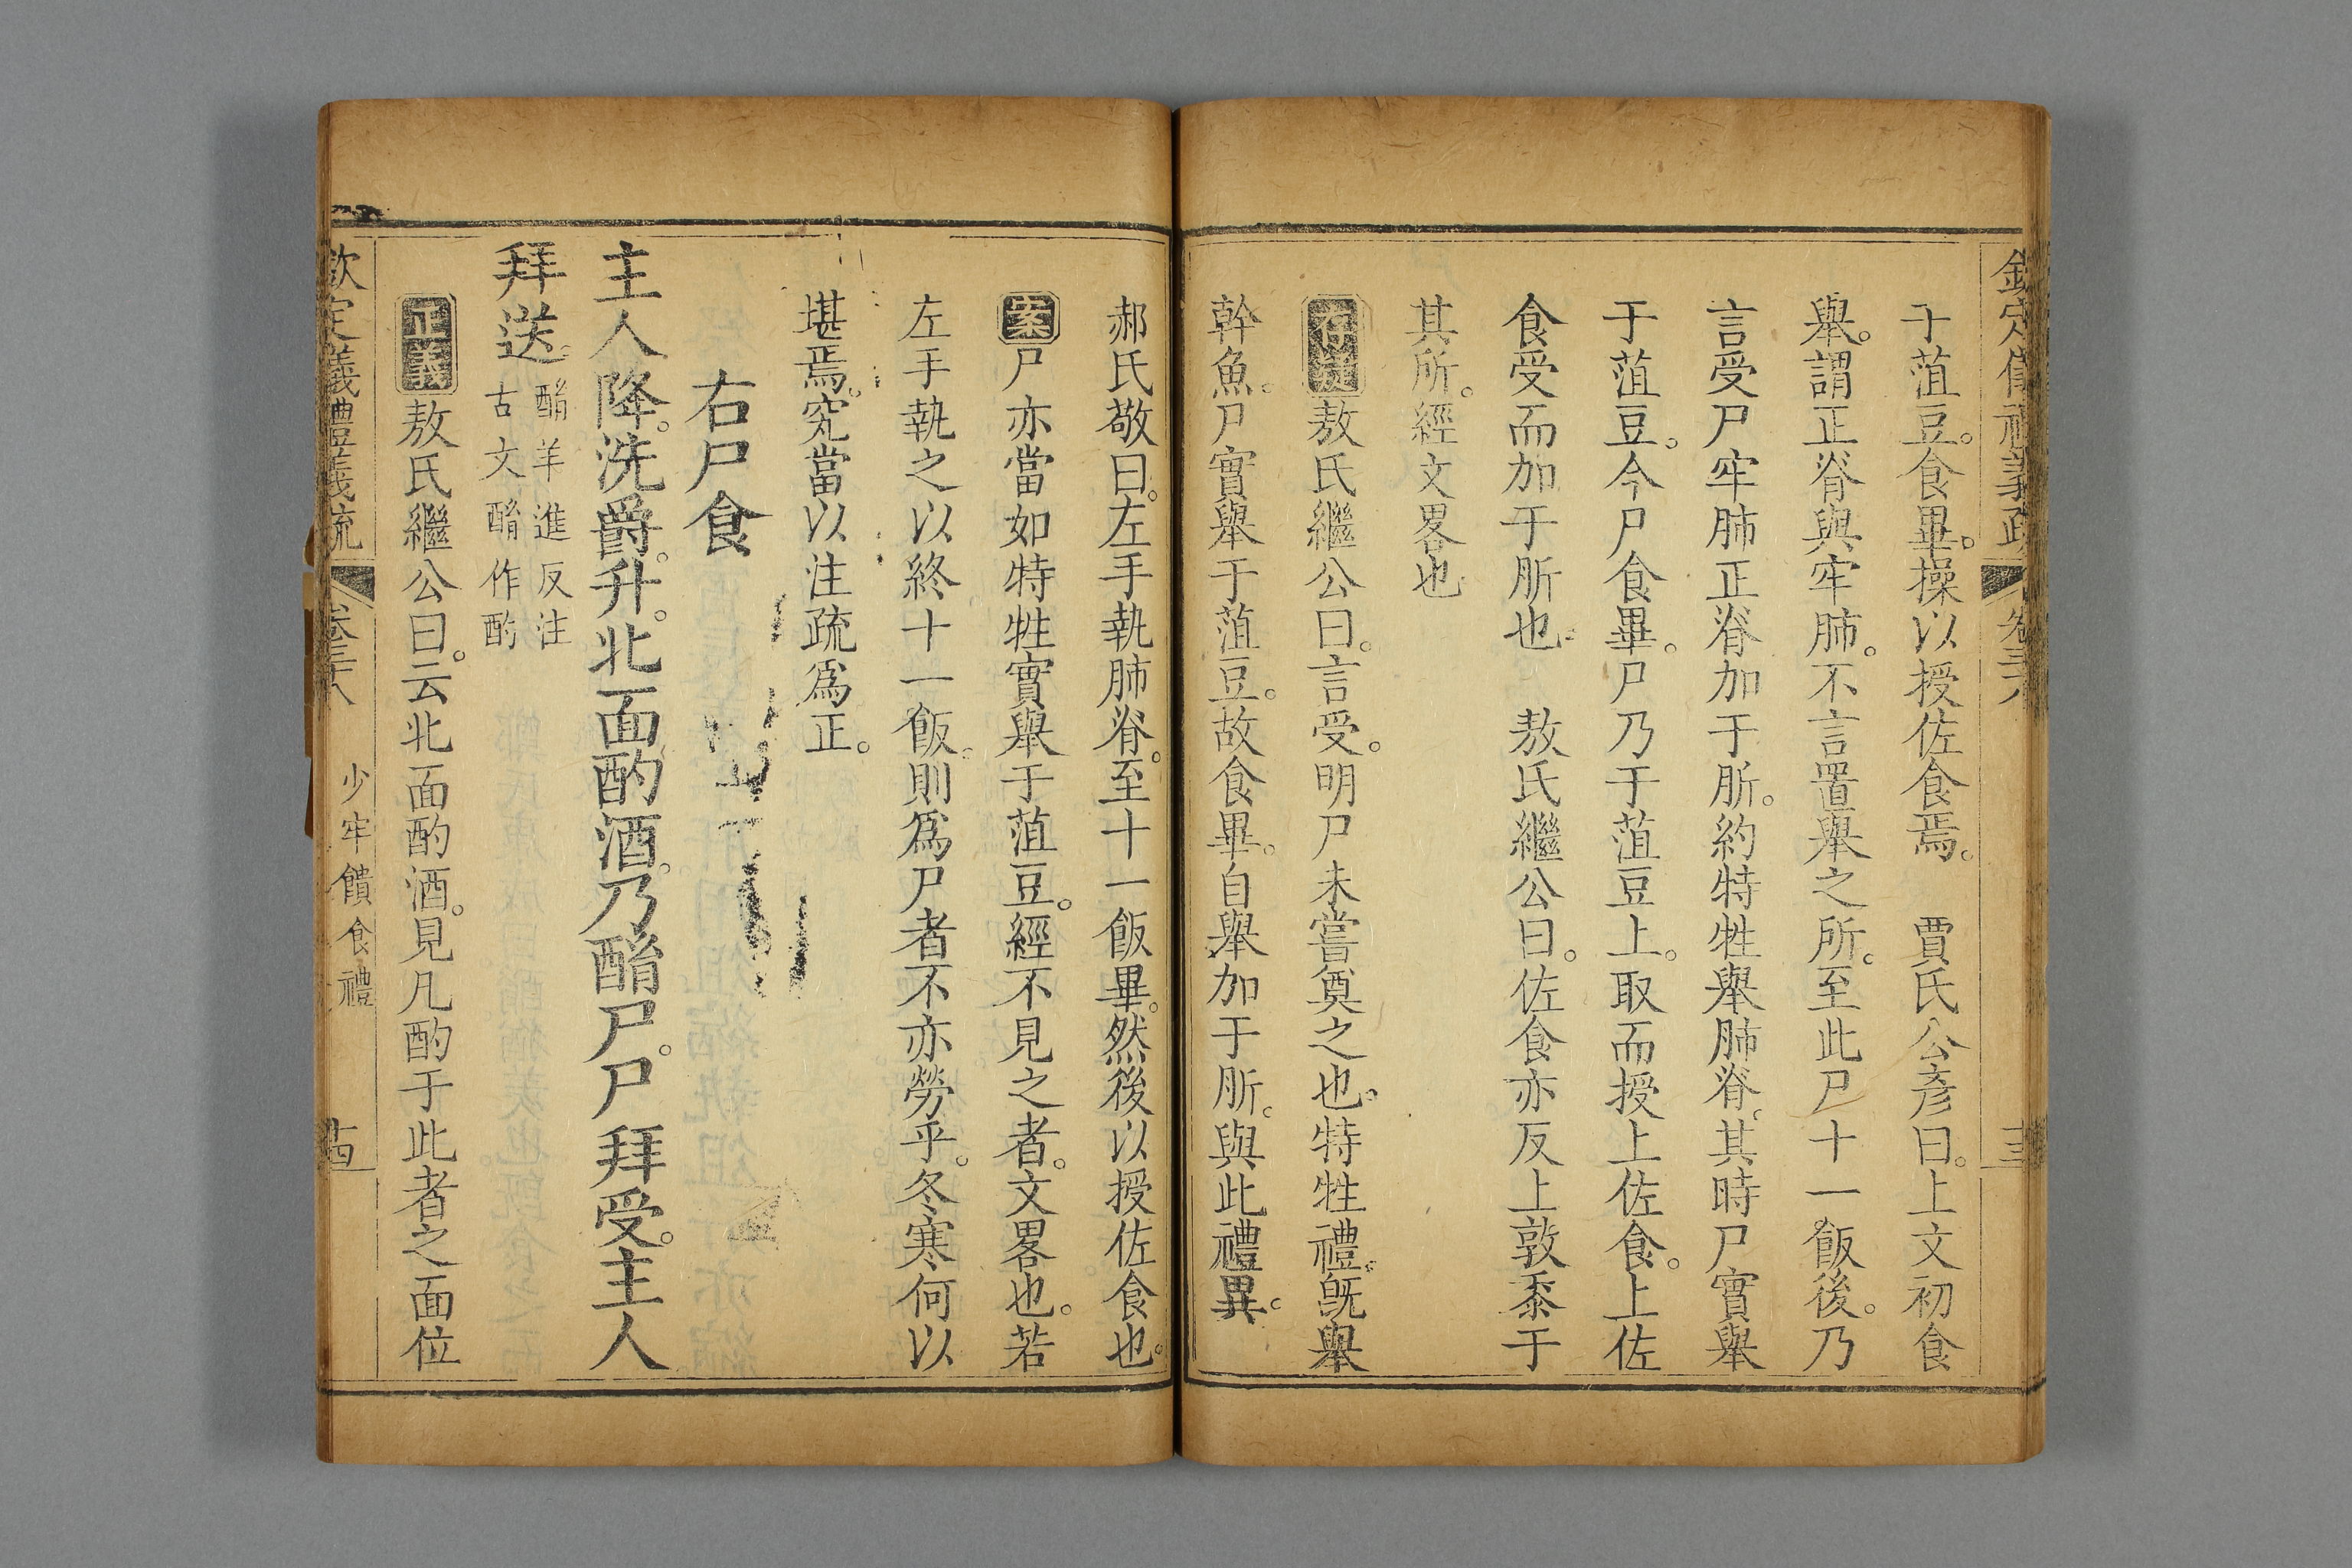 于菹豆。食畢。操以授佐食焉。 賈氏公彥曰。上文初食
舉。謂正脊與牢肺。不言置舉之所。至此尸十一飯後。乃
言受尸牢肺正脊加于肵。約特牲舉肺脊。其時尸實舉
于菹豆。今尸食畢。尸乃于菹豆上。取而授上佐食。上佐
食受而加于肵也 敖氏繼公曰。佐食亦反上敦黍于
其所。經文畧也
存疑敖氏繼公曰。言受。明尸未嘗奠之也。特牲禮。旣舉
幹魚。尸實舉于菹豆。故食畢。自舉加于肵。與此禮異。
郝氏敬曰。左手執肺脊。至十一飯畢。然後以授佐食也。
案尸亦當如特牲實舉于菹豆。經不見之者。文畧也。若
左手執之以終十一飯。則爲尸者不亦勞乎。冬寒何以
堪焉。究當以注疏爲正。
右尸食
主人降。洗爵。升。北面酌酒。乃酳尸。尸拜受。主人
拜送。
酳羊進反注
古文酳作酌
正義敖氏繼公曰。云北面酌酒。見凡酌于此者之面位
欽定儀禮義疏
卷三十八
少牢饋食禮